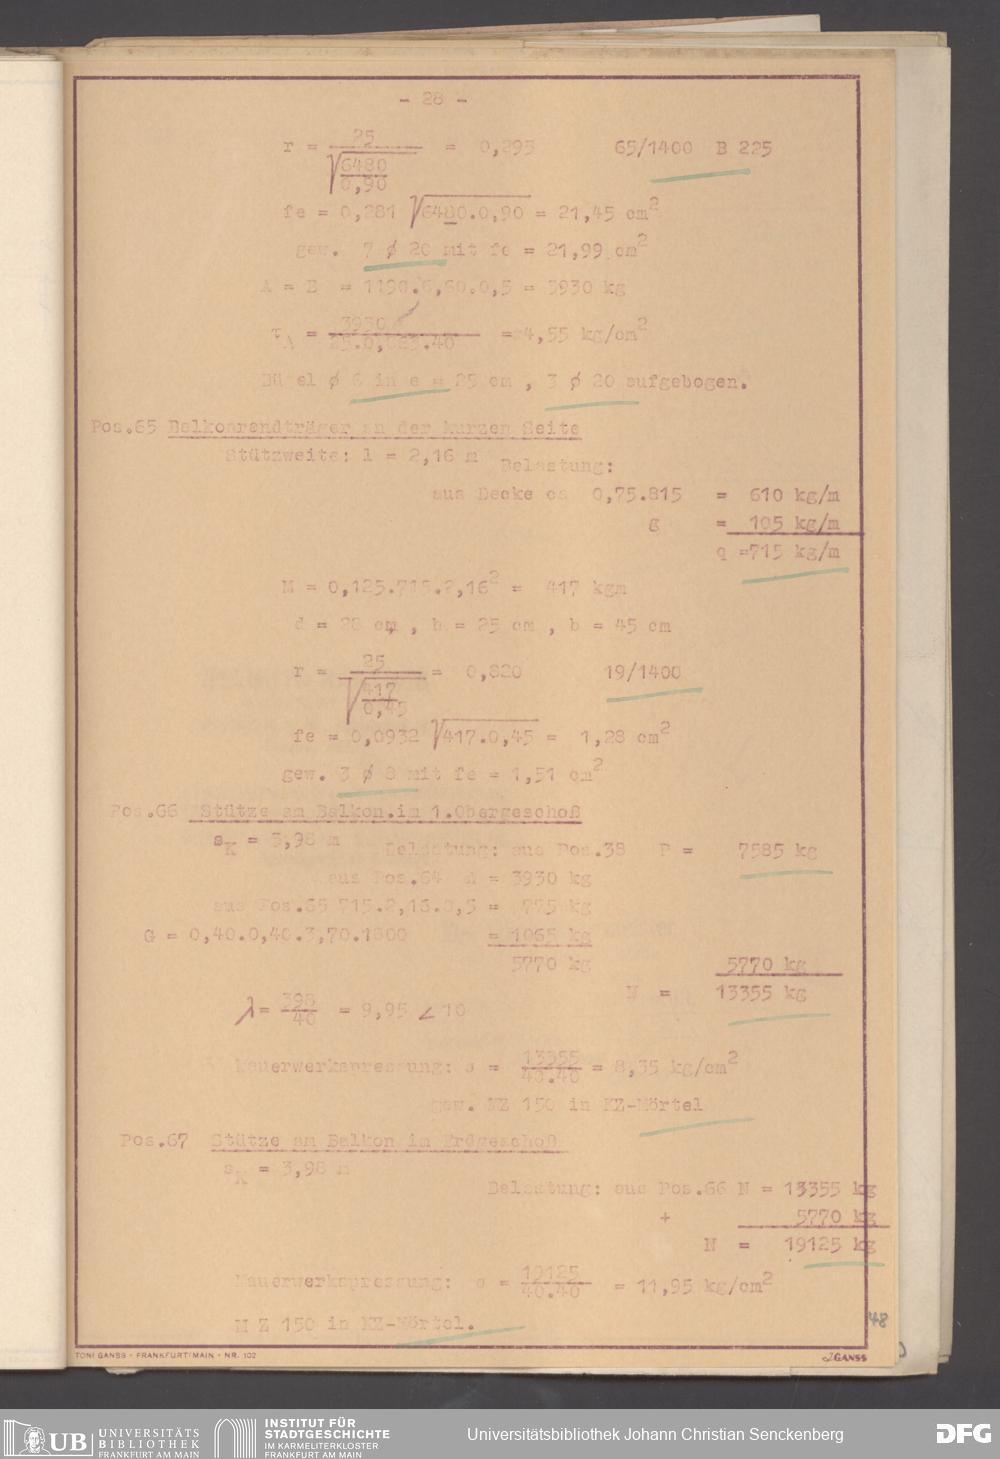 - 28 -
r = 25 / √(6480 / 0,90) = 0,295 65/1400 B 225
fe = 0,281 √6480.0,90 = 21,45 cm²
gew. 7 ø 20 mit fe = 21,99 cm²
A = B = 1190.6,60.0,5 = 3930 kg
τA = 3930 / = 4,55 kg/cm²
Bügel ø 6 in e = 25 cm , 3 ø 20 aufgebogen.
Pos.65 Balkonrandträger an der kurzen Seite
Stützweite: l = 2,16 m Belastung:
aus Decke ca 0,75.815 = 610 kg/m
g = 105 kg/m
q =715 kg/m
M = 0,125.715.2,16² = 417 kgm
d = 28 cm , h = 25 cm , b = 45 cm
r = 25 / √(417 / 0,45) = 0,820 19/1400
fe = 0,0932 √417.0,45 = 1,28 cm²
gew. 3 ø 8 mit fe = 1,51 cm²
Pos.66 Stütze am Balkon.im 1.Obergeschoß
sK = 3,98 m Belastung: aus Pos.38 P = 7585 kg
aus Pos.64 A = 3930 kg
aus Pos.65 715.2,16.0,5 = 775 kg
G = 0,40.0,40.3,70.1800 = 1065 kg
5770 kg 5770 kg
N = 13355 kg
λ = 398 / 40 = 9,95 < 10
Mauerwerkspressung: σ = 13355 / 40.40 = 8,35 kg/cm²
gew. MZ 150 in KZ-Mörtel
Pos.67 Stütze am Balkon im Erdgeschoß
sK = 3,98 m
Belastung: aus Pos.66 N = 13355 kg
+ 5770 kg
N = 19125 kg
Mauerwerkspressung: σ = 19125 / 40.40 = 11,95 kg/cm²
M Z 150 in KZ-Mörtel.
48
TONI GANSS · FRANKFURT/MAIN · NR. 102
GANSS
UB UNIVERSITÄTS
BIBLIOTHEK
FRANKFURT AM MAIN
INSTITUT FÜR
STADTGESCHICHTE
IM KARMELITERKLOSTER
FRANKFURT AM MAIN
Universitätsbibliothek Johann Christian Senckenberg
DFG